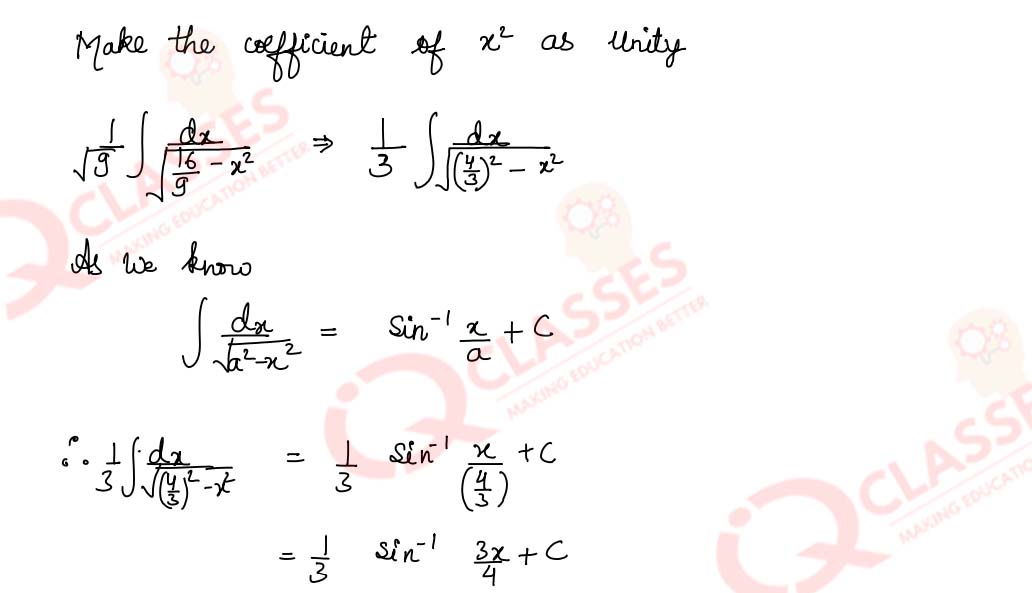 Make the coefficient of x² as Unity
1/√9 ∫ dx/√(16/9 - x²) ⇒ 1/3 ∫ dx/√((4/3)² - x²)
As we know
∫ dx/√(a²-x²) = Sin⁻¹ x/a + C
∴ 1/3 ∫ dx/√((4/3)² - x²) = 1/3 Sin⁻¹ x/(4/3) + C
= 1/3 Sin⁻¹ 3x/4 + C
IQ CLASSES
MAKING EDUCATION BETTER
IQ CLASSES
MAKING EDUCATION BETTER
IQ CLASSES
MAKING EDUCATION